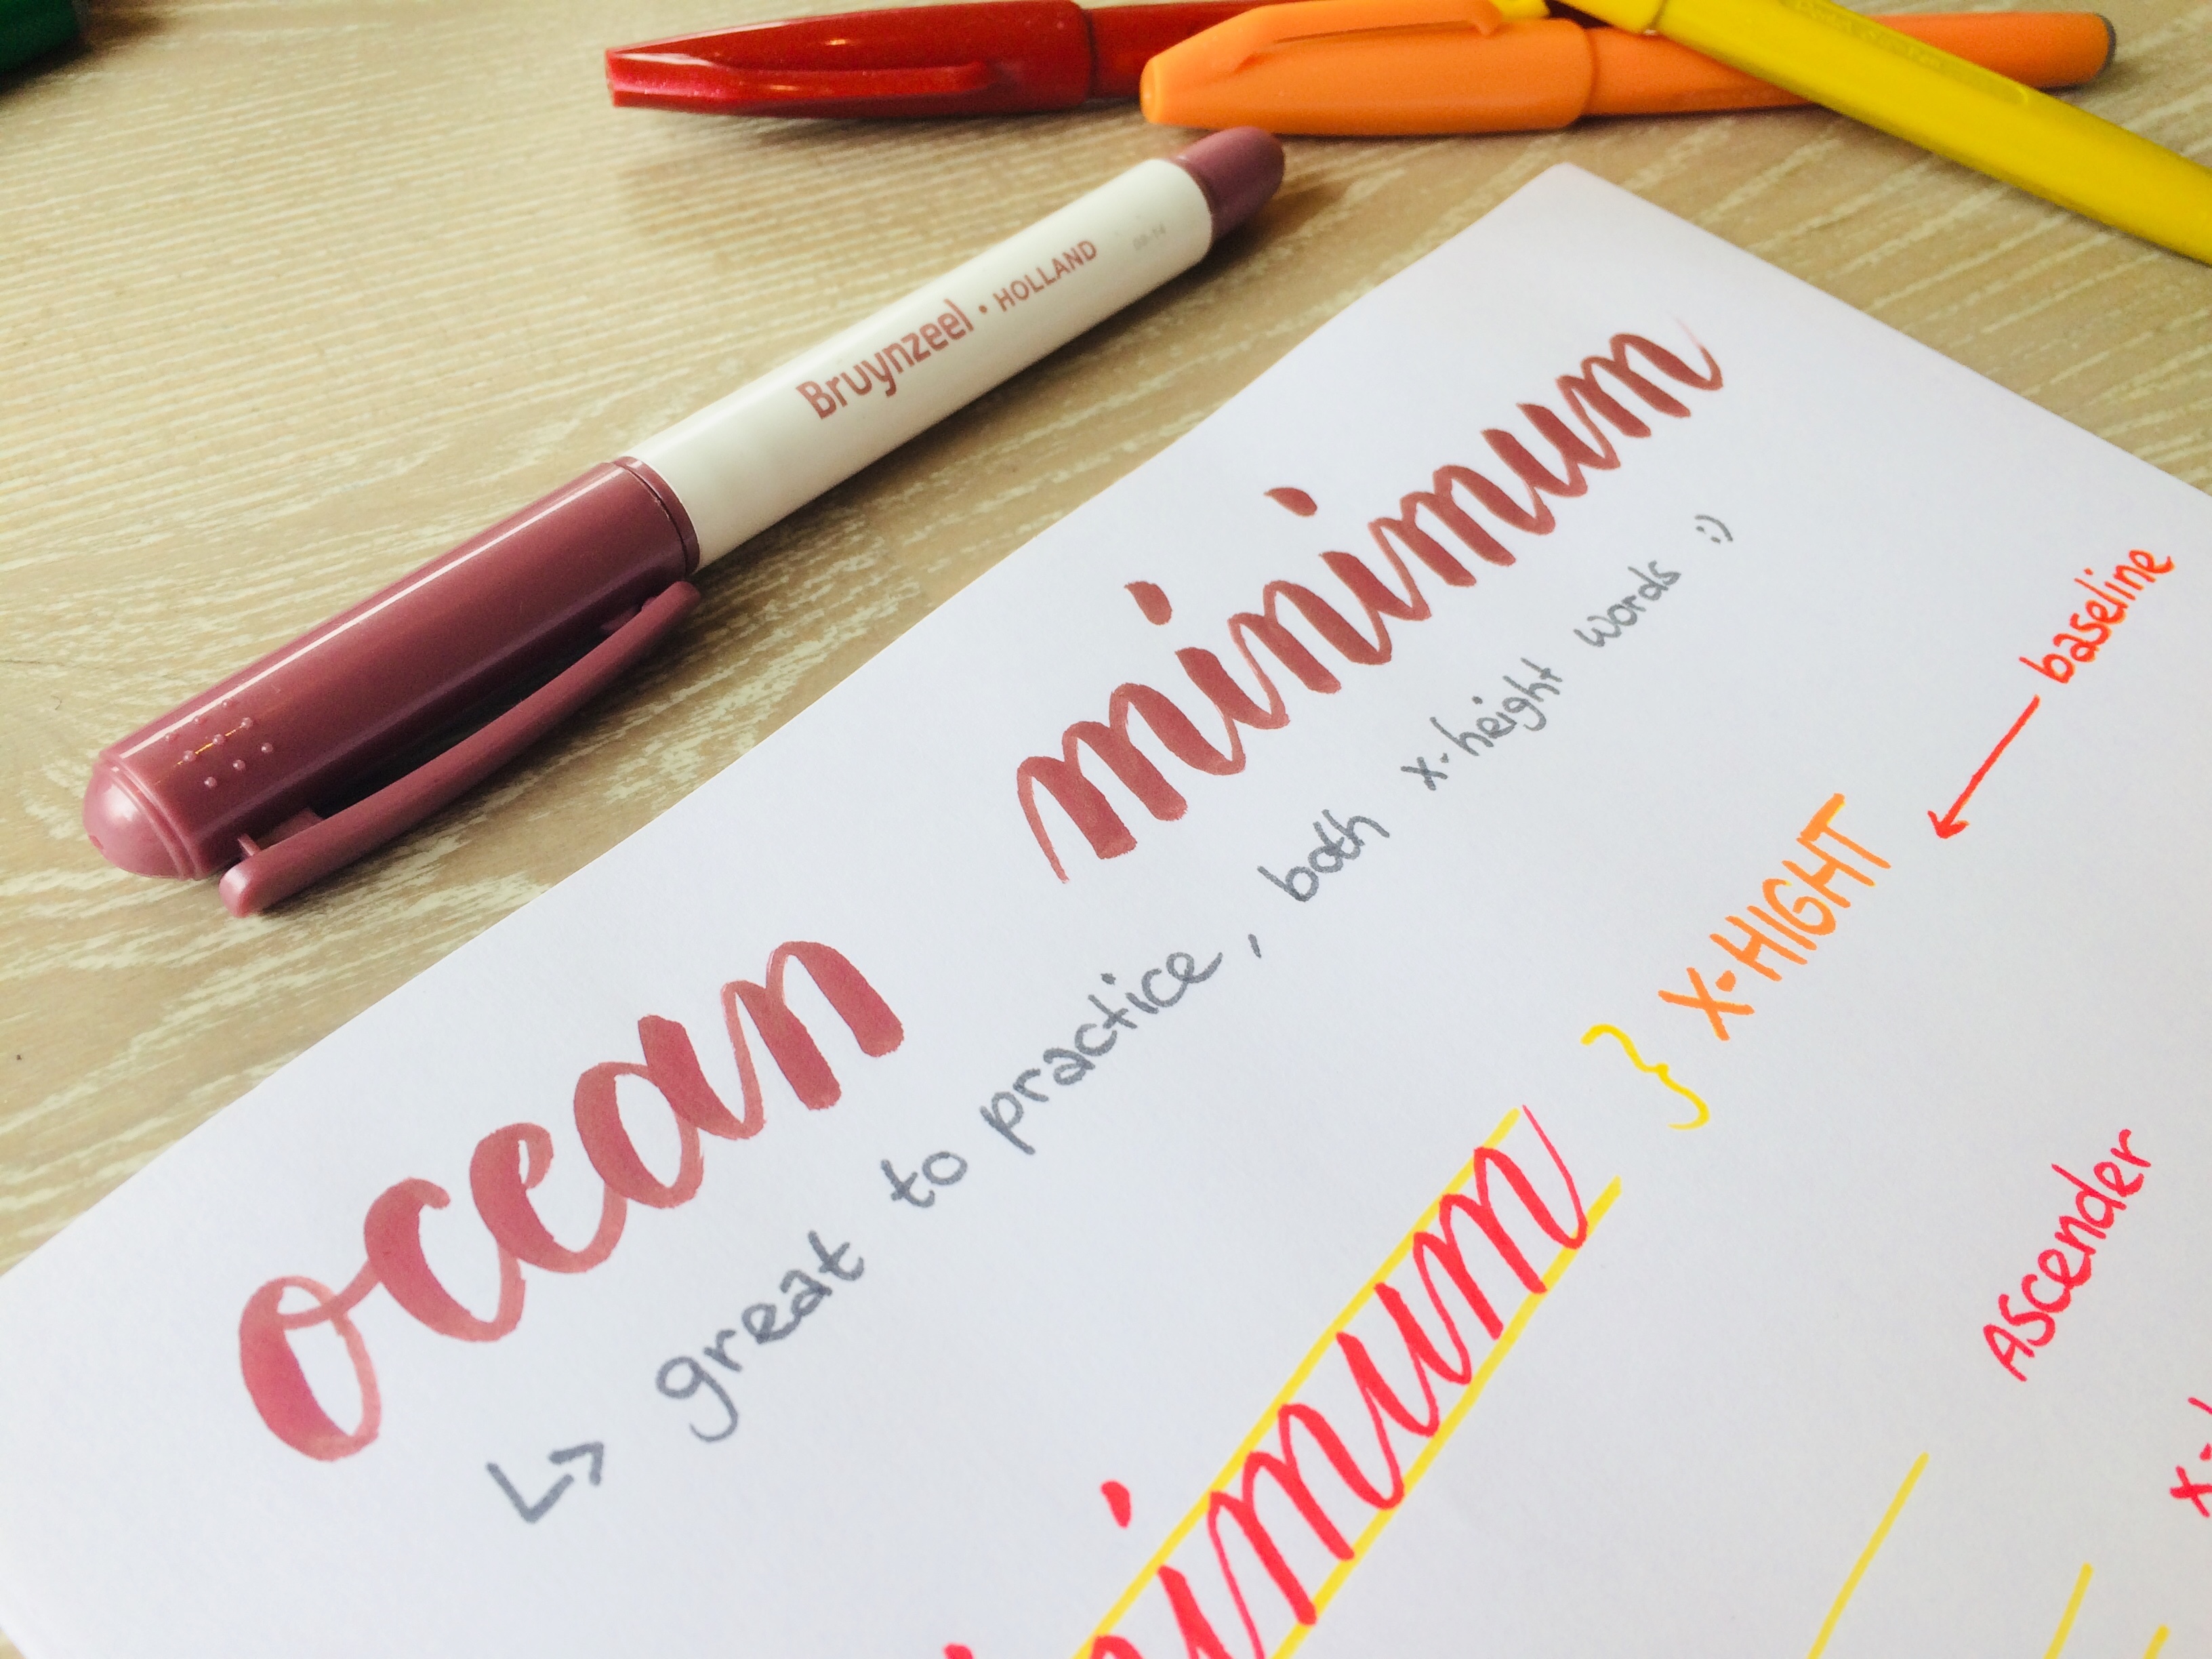 Bruynzeel • HOLLAND
09-14
ocean minimum
↳ great to practice, both x-height words :)
baseline
} X-HIGHT
imum
Ascender
x-